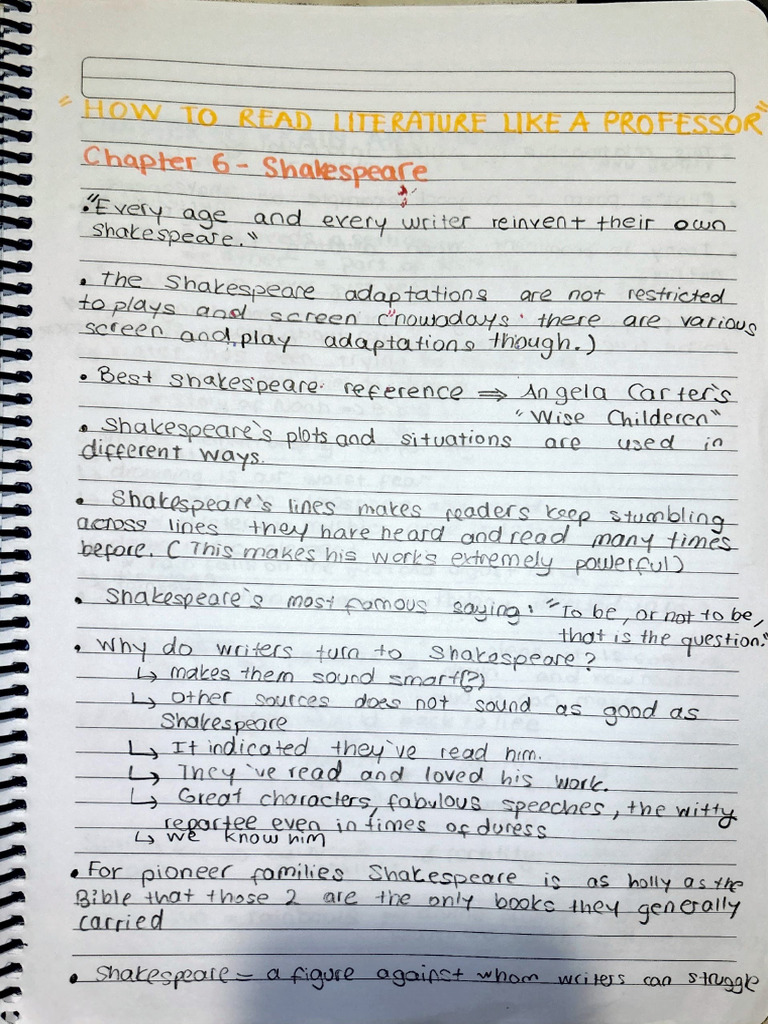 "HOW TO READ LITERATURE LIKE A PROFESSOR"
Chapter 6 - Shakespeare
• "Every age and every writer reinvent their own
Shakespeare."
• The Shakespeare adaptations are not restricted
to plays and screen ("nowadays" there are various
screen and play adaptations though.)
• Best Shakespeare reference ⇒ Angela Carter's
"Wise Childeren"
• Shakespeare's plots and situations are used in
different ways.
• Shakespeare's lines makes readers keep stumbling
across lines they have heard and read many times
before. (This makes his works extremely powerful)
• Shakespeare's most famous saying: "To be, or not to be,
that is the question."
• Why do writers turn to Shakespeare?
↳ makes them sound smart(?)
↳ Other sources does not sound as good as
Shakespeare
↳ It indicated they've read him.
↳ They've read and loved his work.
↳ Great characters, fabulous speeches, the witty
repartee even in times of duress
↳ we know him
• For pioneer families Shakespeare is as holly as the
Bible that those 2 are the only books they generally
carried
• Shakespeare = a figure against whom writers can struggle